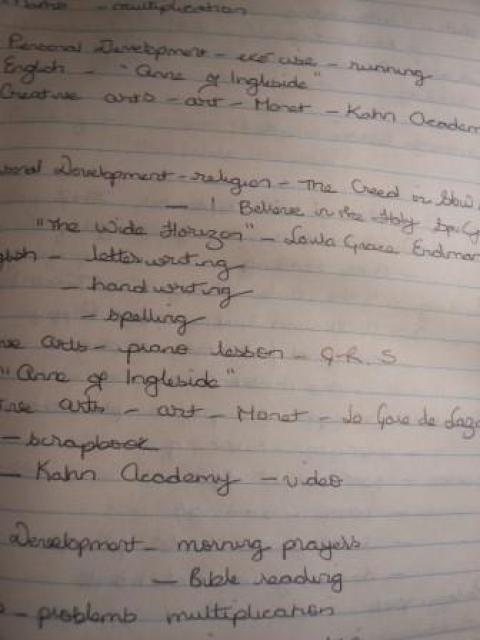 - multiplication
Personal Development - exercise - running
English - "Anne of Ingleside"
Creative arts - art - Monet - Kahn Academ
onal Development - religion - The Creed in Slow
- I Believe in the Holy
"The Wide Horizon" - Loula Grace Erdman
lish - letter writing
- handwriting
- spelling
ve arts - piano lesson - G.R.S
"Anne of Ingleside"
tive arts - art - Monet - La Gare de
- scrapbook
- Kahn Academy - video
Development - morning prayers
- Bible reading
- problems multiplication